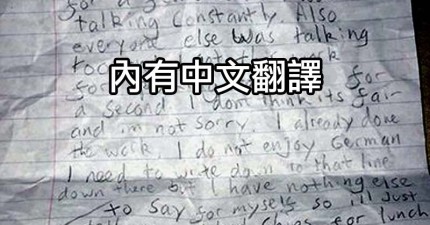 for a
talking constantly. Also
everyone else was talking
too
內有中文翻譯
for
a second. I dont think its fair
and im not sorry. I already done
the work. I do not enjoy German
I need to write down to that line
down there but I have nothing else
to say for myself so ill just
for lunch